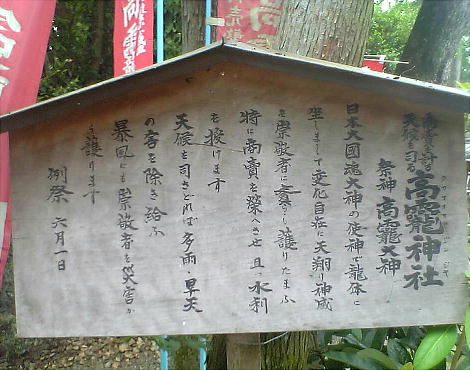 商売繁昌
天候を司る
高龗神社
祭神 高龗大神
日本大国魂大神の使神で龍体に
坐しまして変化自在に天翔り神威
を崇敬者に護りたまふ
特に商賣を榮へさせ且つ水利
を授けます
天候を司どれば多雨・旱天
の害を除き給ふ
暴風にも崇敬者を災害か
護ります
例祭 六月一日